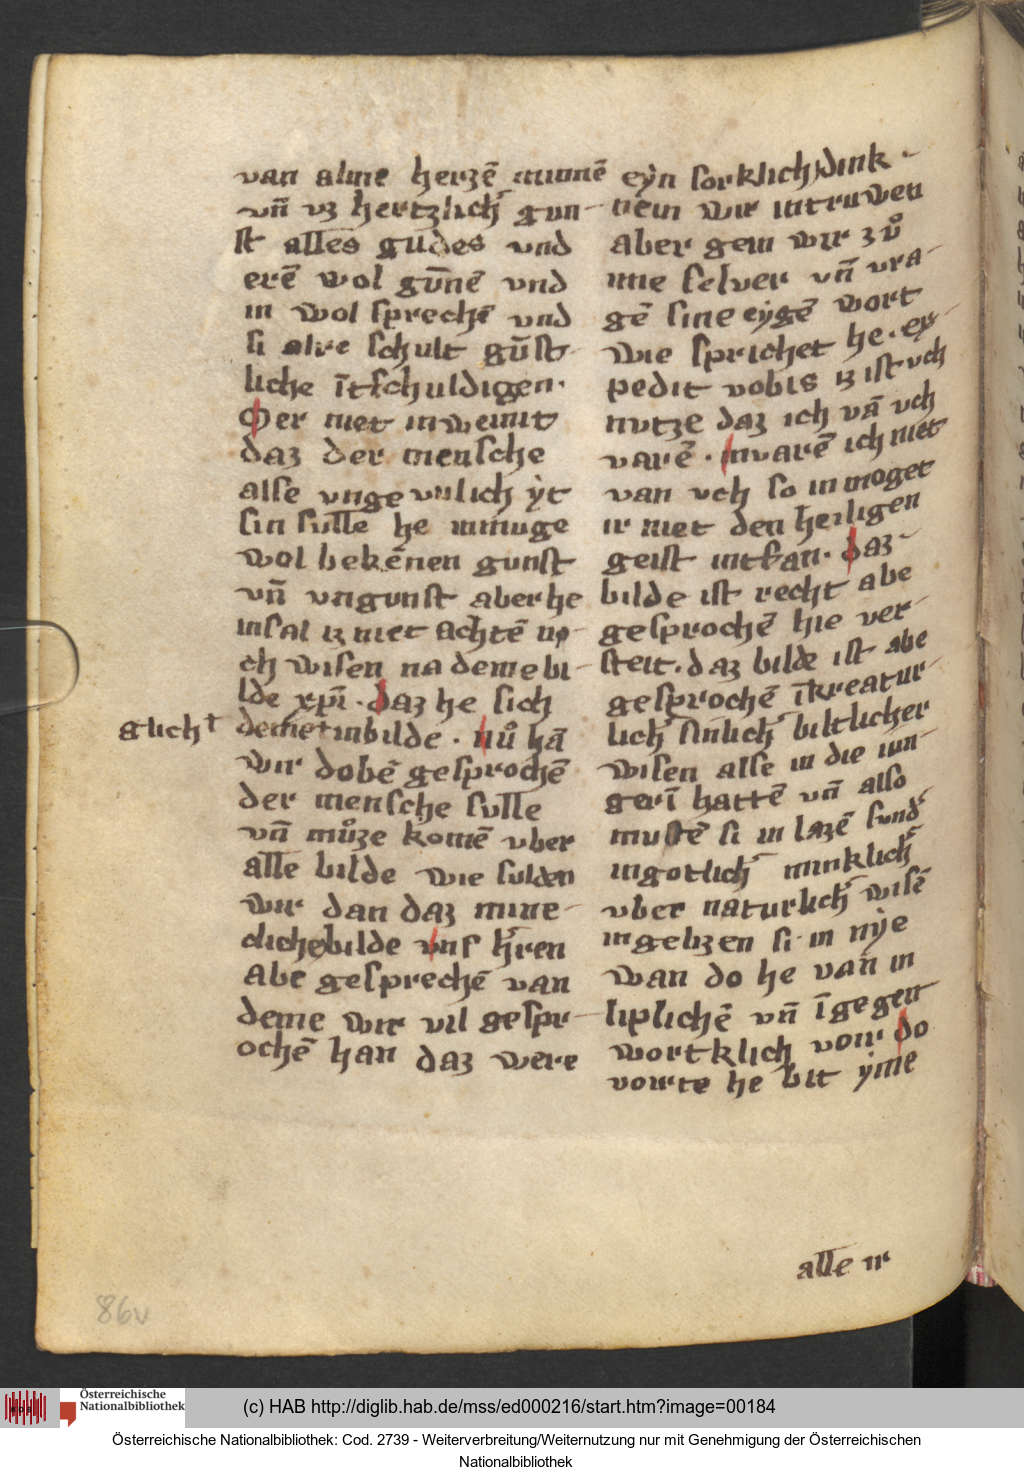 van alme herzē minnē
vn̄ vz hertzlich' gun-
st alles gudes vnd
erē wol gūnē vnd
in wol sprechē vnd
si alre schult gūst-
liche ītschuldigen.
Ober niet inwennt
daz der mensche
alse vngevnlich ẏt
sin sulle he immuge
wol bekēnen gunst
vn̄ vngunst aber he
insal iz niet achtē no-
ch wisen na deme bi-
lde xp̄i. daz he sich
glicht
demet inbilde. nůhā
wir dobē gesprochē
der mensche sulle
vn̄ můze komē vber
alle bilde wie sulden
wir dan daz mine-
cliche bilde vns h'ren
abe gesprechē van
deme wir vil gespr-
ochē han daz were
eẏn sorklich dink.
nein wir intruwen
aber gein wir zů
ime selver vn̄ vra-
gē sine eẏgē wort
wie sprichet he. ex-
pedit vobis iz ist vch
nutze daz ich vā vch
varē. invarē ich niet
van vch so in moget
ir niet den heiligen
geist intfan. daz-
bilde ist recht abe
gesprochē hie ver-
steit. daz bilde ist abe
gesprochē īkreatur-
lich' sinlich' biltlicher
wisen alse in die iun-
gerī hattē vn̄ also
mustē si in lazē sund'
ingotlich' minklich'
vber naturlich' wisē
ingelizen si in nẏe
wan do he van in
liplichē vn̄ īgegen
wortklich vour do
vourte he bit ẏme
alle ir
86v
Österreichische
Nationalbibliothek
(c) HAB http://diglib.hab.de/mss/ed000216/start.htm?image=00184
Österreichische Nationalbibliothek: Cod. 2739 - Weiterverbreitung/Weiternutzung nur mit Genehmigung der Österreichischen
Nationalbibliothek